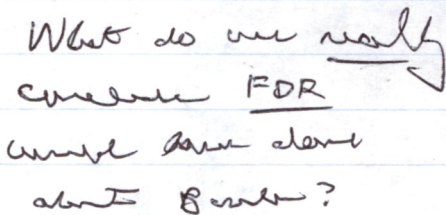 What do we really
conclude FDR
could have done
about Bosnia?